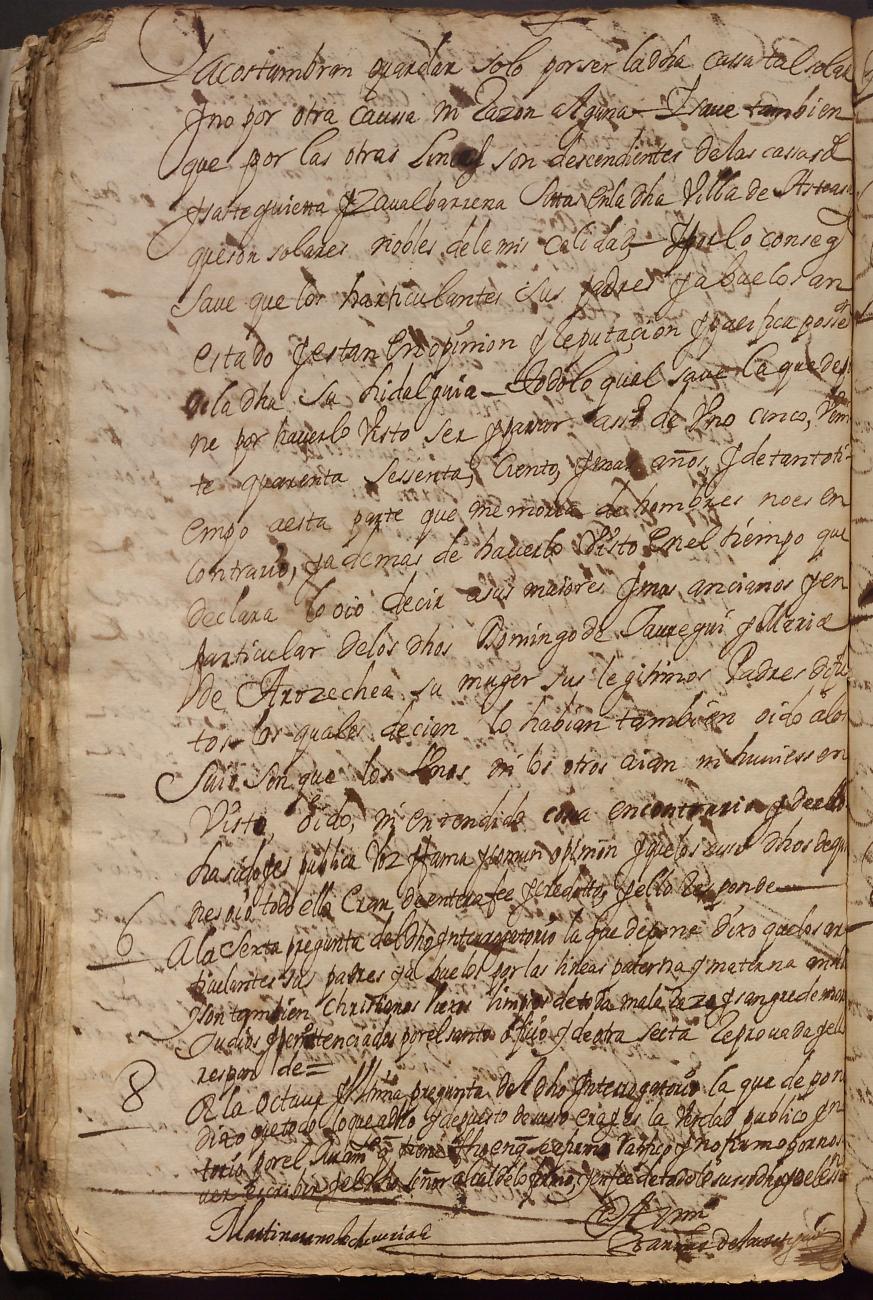 acostumbran guardar solo por ser la dha cassa tal solar
y no por otra caussa ni Razon alguna – Y saue tambien
que por las otras Lineas son descendientes de las cassas d
ysasteguietta y Zaualbarrena sitas en la dha Villa de
que son solares nobles, de la mis calidad – Y por lo conseg
saue que los harticulantes sus padres y abuelos an
estado y estan en opinion y Reputacion y pacifica posse
de la dha su hidalguia – Todo lo qual saue la que depo
ne por hauerlo Visto ser y passar assi de Vno cinco, Vein
te quarenta sessenta, Ciento, y mas años, y de tanto ti
empo a esta parte que memoria de hombres no es en
contrario, y ademas de hauerlo Visto en el tiempo que
declara lo oio decir a sus maiores y mas ancianos y en
particular de los dhos Domingo de Jauregui y Maria
de Arozechea su muger sus legitimos Padres difu
tos los quales decian lo habian tambien oido a los
suios sin que los Vnos ni los otros aian ni huuiessen
Visto, oido, ni entendido cosa en contrario y de ello
ha sido y es publica Voz y fama y comun opinion y que los suso dhos de qn
nes oio todo ello Eran de entera fee y credito, y ello Responde
6 A la sexta pregunta del dho Interrogatorio la que depone dixo que los ar
ticulantes sus padres y abuelos por las lineas paterna y materna an
y son tambien Christianos Viejos limpios de toda mala Raza y sangre de moro
Judios y penitenciados por el santo oficio y de otra secta Reprouada y ello
responde =
8 A la Octaua y Vltima pregunta del dho Interrogatorio la que depone
dixo que todo lo que a dho y depuesto de suso era y es la Verdad publico y no
torio por el Juramto q tiene fho en q se afirmo Ratifico y no firmo por no sa
uer escribir y el dho señor alcalde lo firmo, y en fee de todo lo susodho yo el esno
Ante mi
Martin